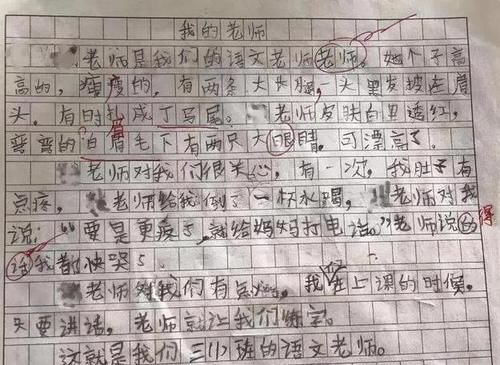 我的老师
老师是我们的语文老师老师。她个子高
高的,瘦瘦的,有两条大长腿,一头黑发披在肩
头。有时扎成丁马尾。老师皮肤白里透红,
弯弯的眉毛下有两只大眼睛,可漂亮了
老师对我们很关心,有一次,我肚子有
点疼,老师给我倒了一杯水喝,老师对我
说:“要是更疼了,就给妈妈打电话。”老师说的 得
话我都快哭了
老师对我们有点 我 在上课的时候。
只要讲话,老师就让我们练字。
这就是我们三(1)班的语文老师。